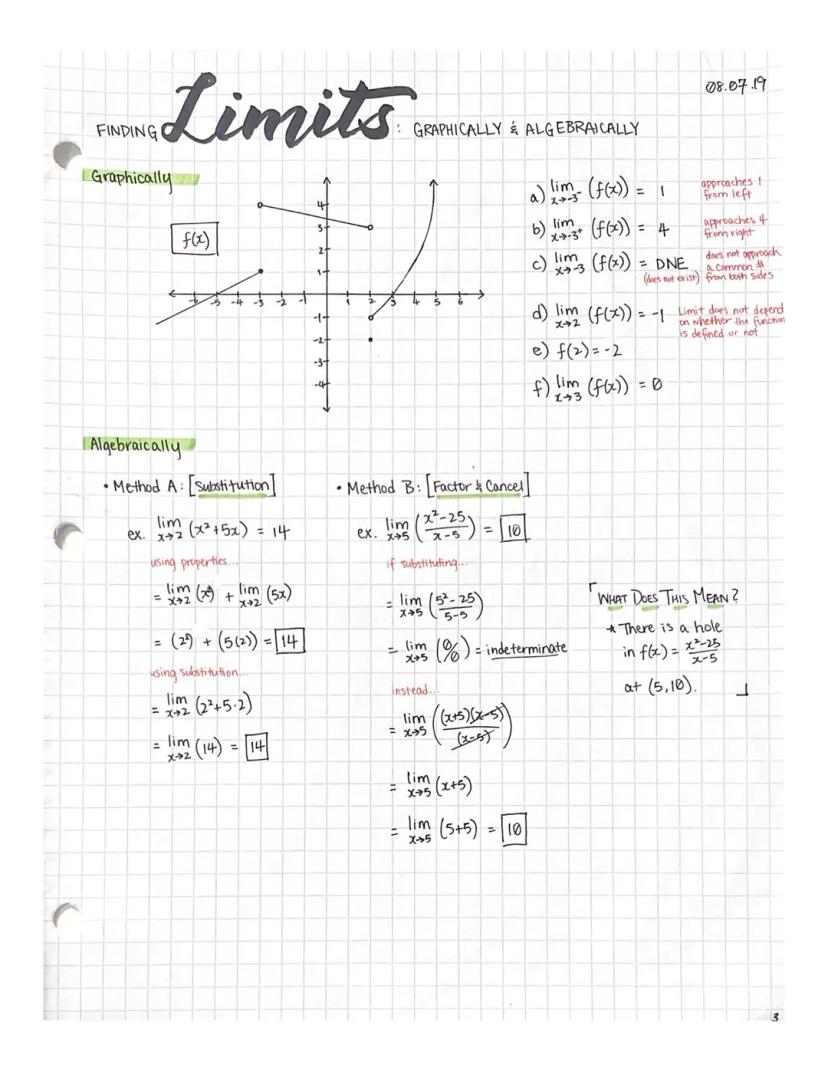 08.07.19
FINDING Limits: GRAPHICALLY & ALGEBRAICALLY
Graphically
f(x)
4
3
2
1
-6 -5 -4 -3 -2 -1 1 2 3 4 5 6
-1
-2
-3
-4
a) lim x→-3⁻ (f(x)) = 1 approaches 1 from left
b) lim x→-3⁺ (f(x)) = 4 approaches 4 from right
c) lim x→-3 (f(x)) = DNE (does not exist) does not approach a common # from both sides
d) lim x→2 (f(x)) = -1 Limit does not depend on whether the function is defined or not
e) f(2) = -2
f) lim x→3 (f(x)) = 0
Algebraically
• Method A: [Substitution]
ex. lim x→2 (x²+5x) = 14
using properties...
= lim x→2 (x²) + lim x→2 (5x)
= (2²) + (5(2)) = 14
using substitution...
= lim x→2 (2²+5·2)
= lim x→2 (14) = 14
• Method B: [Factor & Cancel]
ex. lim x→5 ((x²-25)/(x-5)) = 10
if substituting...
= lim x→5 ((5²-25)/(5-5))
= lim x→5 (0/0) = indeterminate
instead...
= lim x→5 ((x+5)(x-5)/(x-5))
= lim x→5 (x+5)
= lim x→5 (5+5) = 10
WHAT DOES THIS MEAN?
* There is a hole
in f(x) = (x²-25)/(x-5)
at (5,10).
3